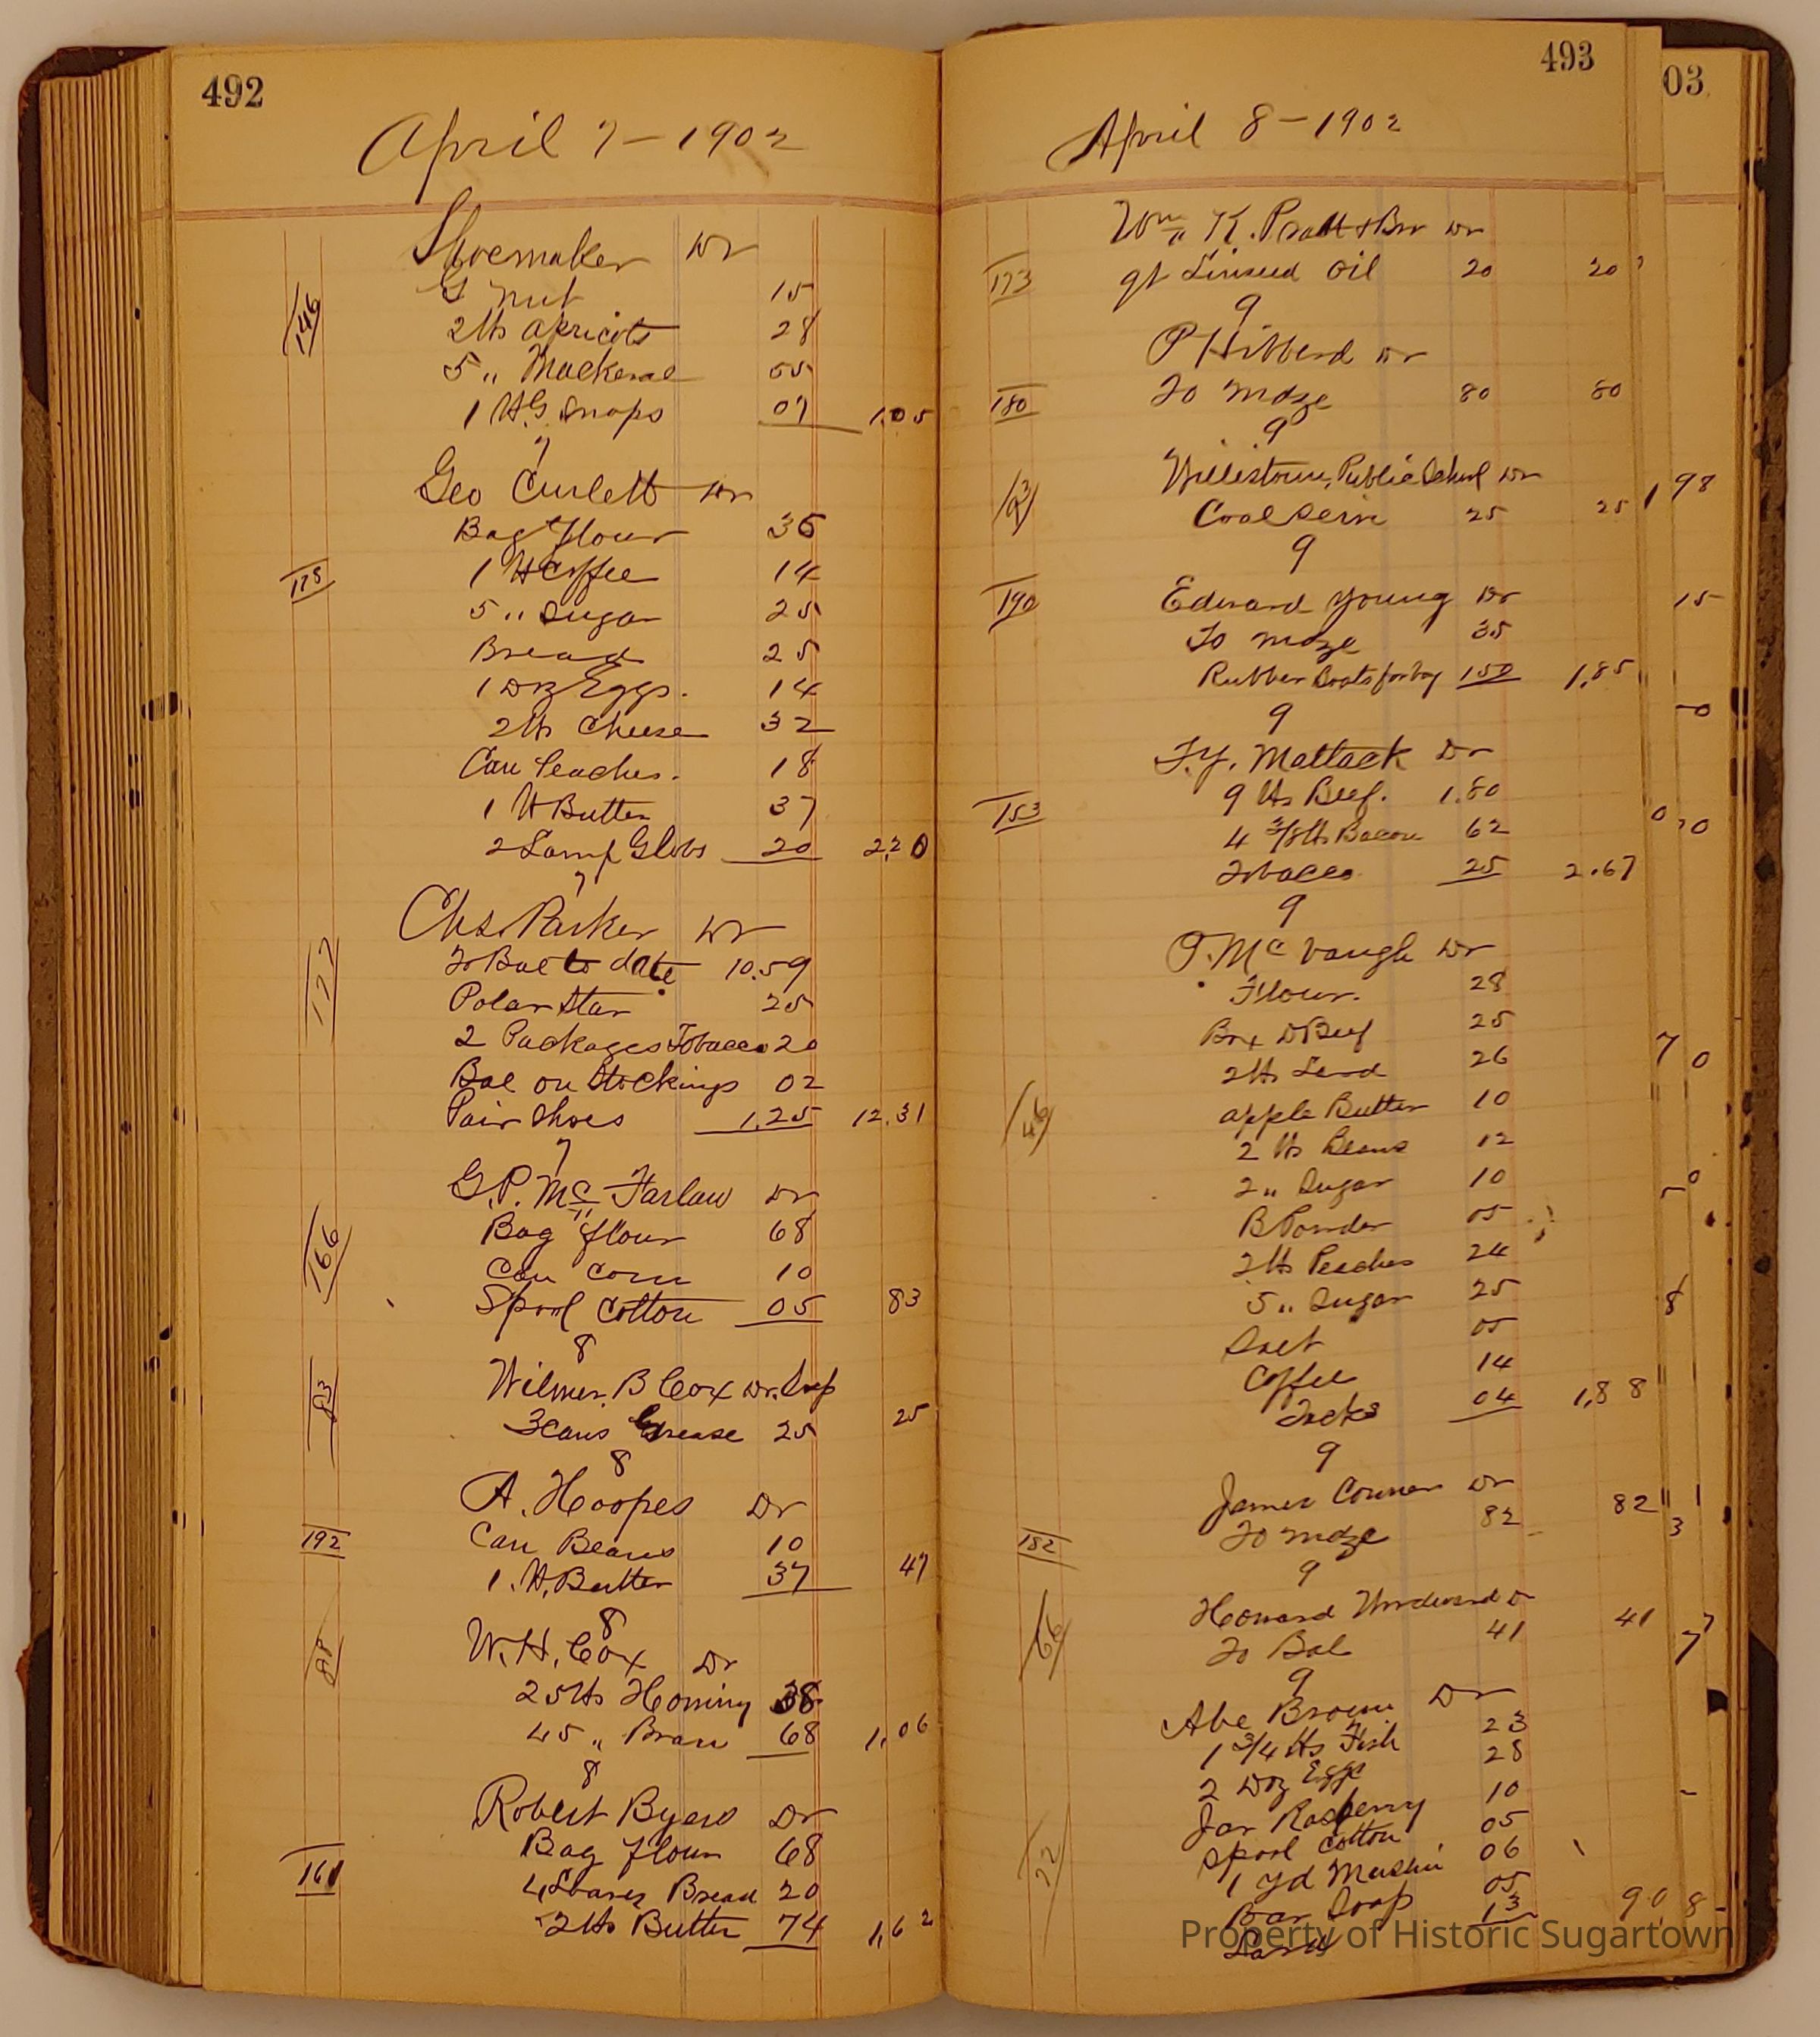 492
April 7 - 1902
Shoemaker Dr
G nut 15
146
2 lbs apricots 28
5 " Mackeral 55
1 lb G. Snaps 07 1.05
7
Geo Curlett Dr
Bag flour 35
175 1 lb Coffee 14
5 " Sugar 25
Bread 25
1 Doz Eggs. 14
2 lbs Cheese 32
Can Peaches. 18
1 lb Butter 37
2 Lamp Globs 20 2.20
7
Chs. Parker Dr
To Bal to date 10.59
122 Polar Star 25
2 Packages Tobacco 20
Bal on Stockings 02
Pair Shoes 1.25 12.31
7
G.P. Mc Farlan Dr
166 Bag flour 68
Can Corn 10
Spool Cotton 05 83
8
Wilmer. B Cox Dr.
83 3 Cans Grease 25 25
8
A. Hoopes Dr
192 Can Beans 10
1 lb. Butter 37 47
8
W. H. Cox Dr
25 lbs Hominy 38
45 " Bran 68 1.06
8
Robert Byers Dr
Bag flour 68
161 4 Loaves Bread 20
2 lbs Butter 74 1.62
493
April 8 - 1902
Wm K. Pratt & Bro Dr
173 qt Linseed Oil 20 20
9
P Hibberd Dr
180 To mdze 80 80
9
Willistown Public School Dr
Coal 25 25
9
190 Edward Young Dr
To mdze 35
Rubber Boots for boy 150 1.85
9
T.Y. Mattack Dr
153 9 lbs Beef. 1.80
4 3/8 lbs Bacon 62
Tobacco 25 2.67
9
P. Mc Vaugh Dr
Flour. 28
Box D Beef 25
2 lbs Lard 26
46 apple Butter 10
2 lbs Beans 12
2 " Sugar 10
B Powder 05
2 lbs Peaches 24
5 " Sugar 25
Salt 05
Coffee 14
Tacks 04 1.88
9
James Conner Dr
182 To mdze 82 82
9
Howard Underwood Dr
66 To Bal 41 41
9
Abe Brown Dr
1 3/4 lbs Fish 23
2 Doz Eggs 28
Jar Rasberry 10
22 Spool Cotton 05
1 yd Muslin 06
Bar Soap 05
Lard 13 90
03
98
15
Property of Historic Sugartown